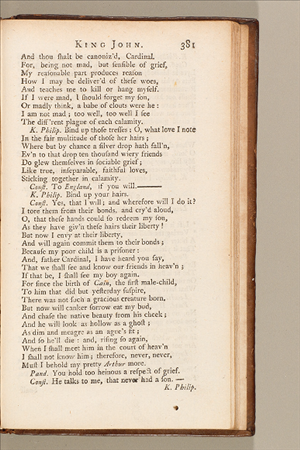 KING JOHN. 381
And thou shalt be canoniz'd, Cardinal.
For, being not mad, but sensible of grief,
My reasonable part produces reason
How I may be deliver'd of these woes,
And teaches me to kill or hang myself.
If I were mad, I should forget my son,
Or madly think, a babe of clouts were he:
I am not mad; too well, too well I feel
The diff'rent plague of each calamity.
K. Philip. Bind up those tresses: O, what love I note
In the fair multitude of those her hairs;
Where but by chance a silver drop hath fall'n,
Ev'n to that drop ten thousand wiery friends
Do glew themselves in sociable grief;
Like true, inseparable, faithful loves,
Sticking together in calamity.
Const. To England, if you will.———
K. Philip. Bind up your hairs.
Const. Yes, that I will; and wherefore will I do it?
I tore them from their bonds, and cry'd aloud,
O, that these hands could so redeem my son,
As they have giv'n these hairs their liberty!
But now I envy at their liberty,
And will again commit them to their bonds;
Because my poor child is a prisoner:
And, father Cardinal, I have heard you say,
That we shall see and know our friends in heav'n;
If that be, I shall see my boy again.
For since the birth of Cain, the first male-child,
To him that did but yesterday suspire,
There was not such a gracious creature born,
But now will canker sorrow eat my bud,
And chase the native beauty from his cheek;
And he will look as hollow as a ghost;
As dim and meagre as an ague's fit;
And so he'll die: and, rising so again,
When I shall meet him in the court of heav'n
I shall not know him; therefore, never, never,
Must I behold my pretty Arthur more.
Pand. You hold too heinous a respect of grief.
Const. He talks to me, that never had a son. —
K. Philip.